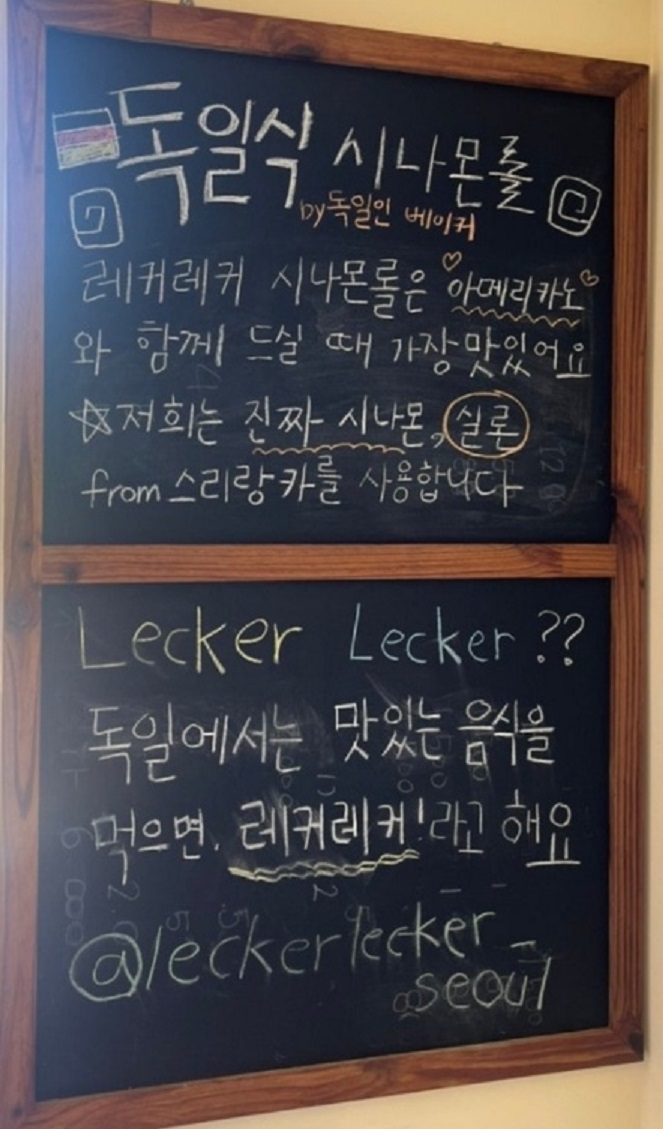 독일식 시나몬롤
by독일인 베이커
레커레커 시나몬롤은 아메리카노
와 함께 드실 때 가장 맛있어요
☆저희는 진짜 시나몬, 실론
from 스리랑카를 사용합니다
Lecker Lecker ??
독일에서는 맛있는 음식을
먹으면, 레커레커!라고 해요
@leckerlecker_
seoul